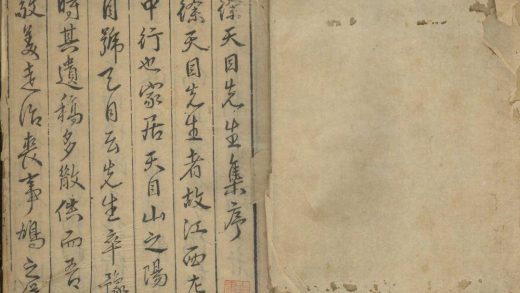 徐天目先生集序
徐天目先生者故江西左
中行也家居天目山之陽
自號天目云先生卒豫
時其遺稿多散佚而吾
敬美走治喪事鳩之